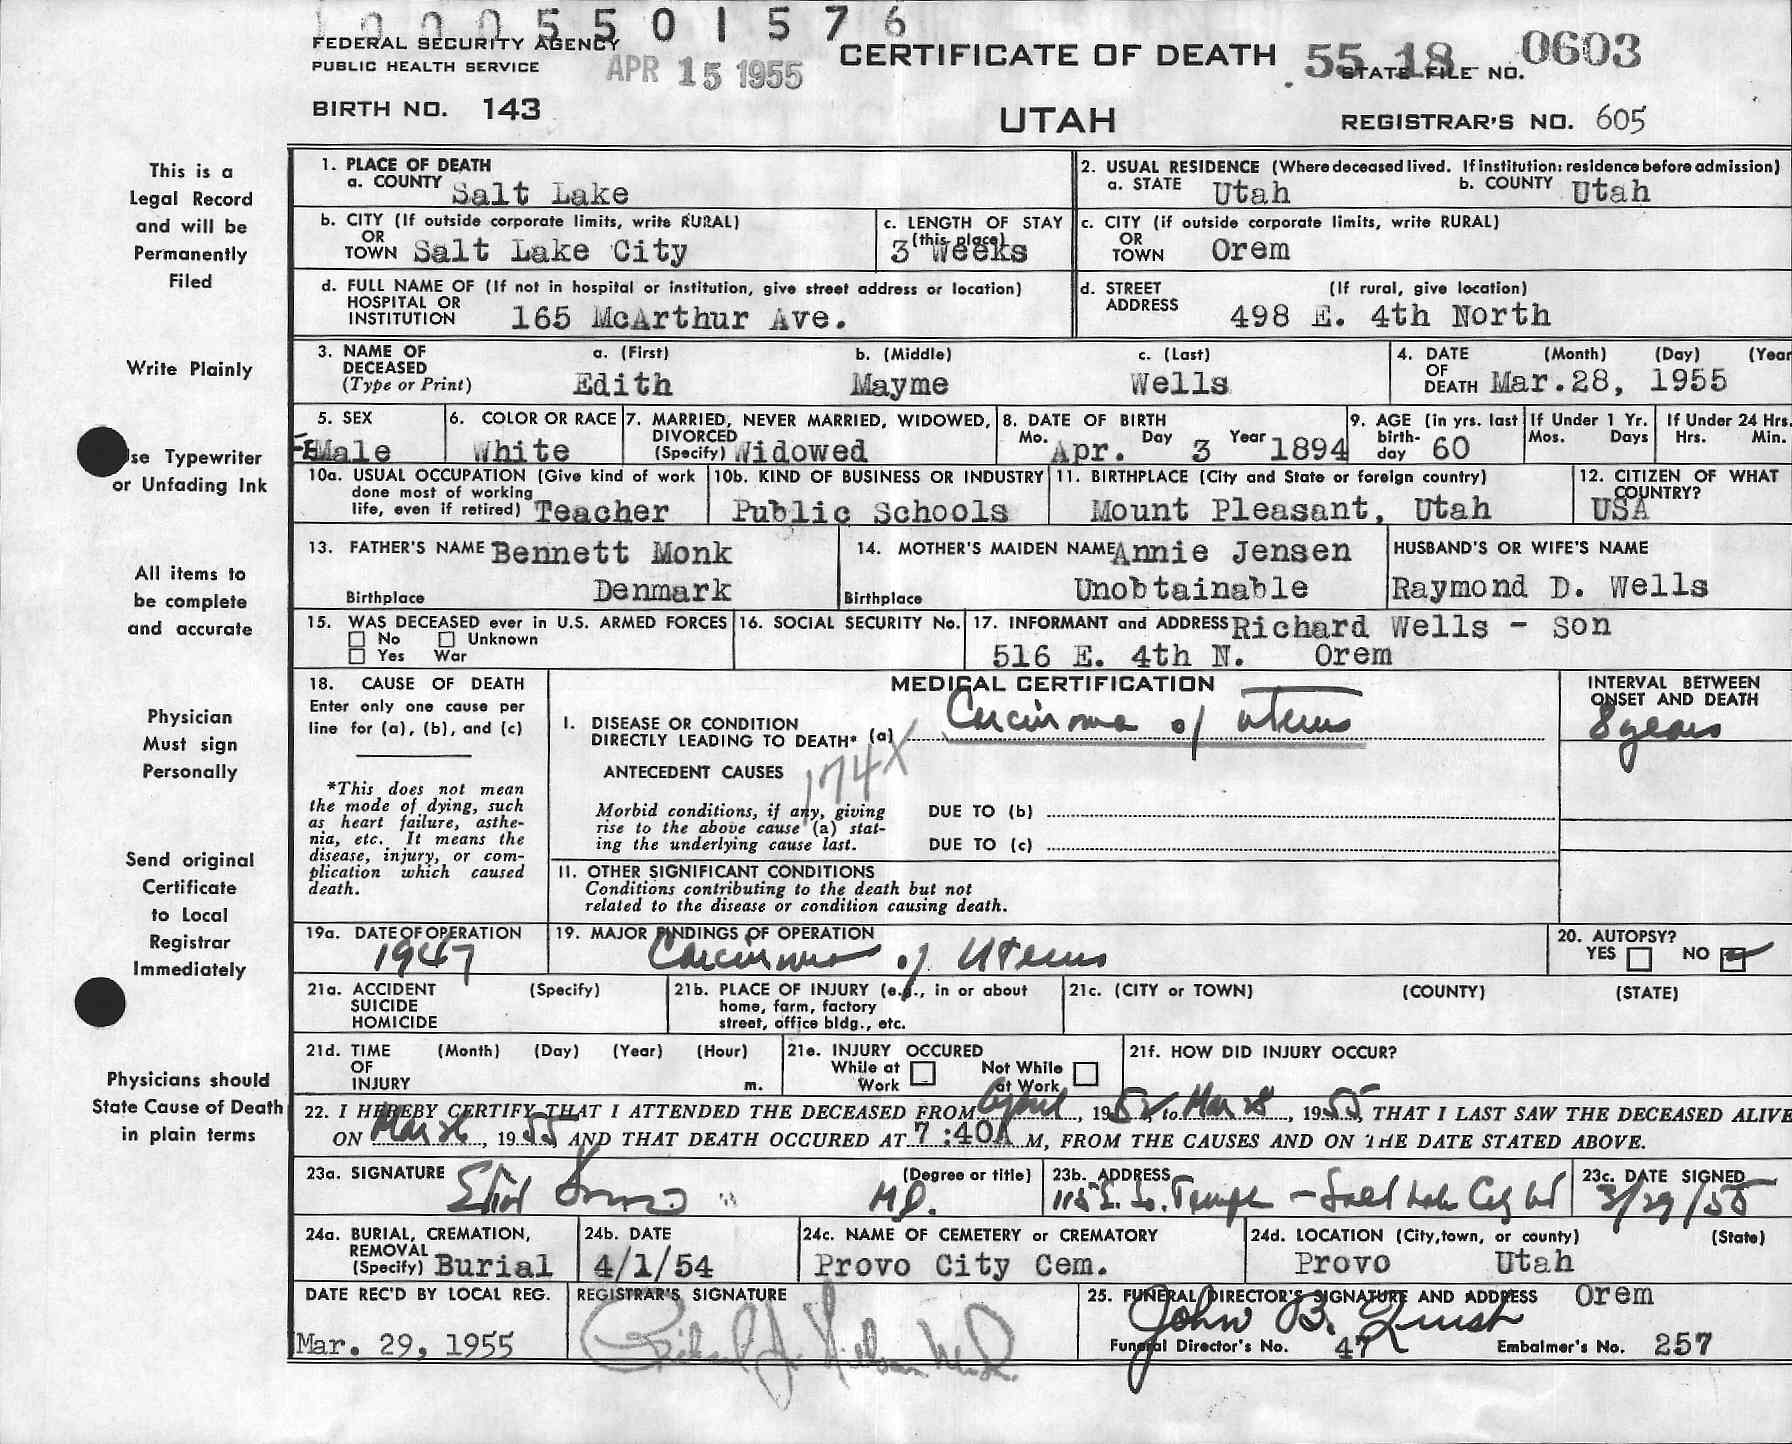 10005501576
FEDERAL SECURITY AGENCY
PUBLIC HEALTH SERVICE
APR 15 1955
CERTIFICATE OF DEATH
55 18 0603
STATE FILE NO.
BIRTH NO. 143
UTAH
REGISTRAR'S NO. 605
This is a
Legal Record
and will be
Permanently
Filed
Write Plainly
Use Typewriter
or Unfading Ink
All items to
be complete
and accurate
Physician
Must sign
Personally
Send original
Certificate
to Local
Registrar
Immediately
Physicians should
State Cause of Death
in plain terms
1. PLACE OF DEATH
a. COUNTY Salt Lake
2. USUAL RESIDENCE (Where deceased lived. If institution: residence before admission)
a. STATE Utah b. COUNTY Utah
b. CITY (If outside corporate limits, write RURAL)
OR
TOWN Salt Lake City
c. LENGTH OF STAY
(this place)
3 Weeks
c. CITY (if outside corporate limits, write RURAL)
OR
TOWN Orem
d. FULL NAME OF (If not in hospital or institution, give street address or location)
HOSPITAL OR
INSTITUTION 165 McArthur Ave.
d. STREET (If rural, give location)
ADDRESS
498 E. 4th North
3. NAME OF a. (First) b. (Middle) c. (Last)
DECEASED
(Type or Print) Edith Mayme Wells
4. DATE (Month) (Day) (Year
OF
DEATH Mar.28, 1955
5. SEX
FEMale
6. COLOR OR RACE
White
7. MARRIED, NEVER MARRIED, WIDOWED,
DIVORCED
(Specify) Widowed
8. DATE OF BIRTH
Mo. Apr. Day 3 Year 1894
9. AGE (in yrs. last
birth-
day 60
If Under 1 Yr.
Mos. Days
If Under 24 Hrs.
Hrs. Min.
10a. USUAL OCCUPATION (Give kind of work
done most of working
life, even if retired) Teacher
10b. KIND OF BUSINESS OR INDUSTRY
Public Schools
11. BIRTHPLACE (City and State or foreign country)
Mount Pleasant, Utah
12. CITIZEN OF WHAT
COUNTRY?
USA
13. FATHER'S NAME Bennett Monk
Birthplace Denmark
14. MOTHER'S MAIDEN NAME Annie Jensen
Birthplace Unobtainable
HUSBAND'S OR WIFE'S NAME
Raymond D. Wells
15. WAS DECEASED ever in U.S. ARMED FORCES
No Unknown
Yes War
16. SOCIAL SECURITY No.
17. INFORMANT and ADDRESS Richard Wells - Son
516 E. 4th N. Orem
18. CAUSE OF DEATH
Enter only one cause per
line for (a), (b), and (c)
*This does not mean
the mode of dying, such
as heart failure, asthe-
nia, etc. It means the
disease, injury, or com-
plication which caused
death.
MEDICAL CERTIFICATION
I. DISEASE OR CONDITION
DIRECTLY LEADING TO DEATH* (a) Carcinoma of uterus
174X
ANTECEDENT CAUSES
Morbid conditions, if any, giving
rise to the above cause (a) stat-
ing the underlying cause last.
DUE TO (b)
DUE TO (c)
11. OTHER SIGNIFICANT CONDITIONS
Conditions contributing to the death but not
related to the disease or condition causing death.
INTERVAL BETWEEN
ONSET AND DEATH
8 years
19a. DATE OF OPERATION
1947
19. MAJOR FINDINGS OF OPERATION
Carcinoma of Uterus
20. AUTOPSY?
YES NO
21a. ACCIDENT (Specify)
SUICIDE
HOMICIDE
21b. PLACE OF INJURY (e.g., in or about
home, farm, factory
street, office bldg., etc.
21c. (CITY or TOWN) (COUNTY) (STATE)
21d. TIME (Month) (Day) (Year) (Hour)
OF
INJURY m.
21e. INJURY OCCURED
While at Work Not While at Work
21f. HOW DID INJURY OCCUR?
22. I HEREBY CERTIFY THAT I ATTENDED THE DECEASED FROM April, 1952, to Mar 28, 1955, THAT I LAST SAW THE DECEASED ALIVE
ON Mar 28, 1955 AND THAT DEATH OCCURED AT 7:40A M, FROM THE CAUSES AND ON THE DATE STATED ABOVE.
23a. SIGNATURE (Degree or title)
M.D.
23b. ADDRESS
115 E. So. Temple - Salt Lake City Ut
23c. DATE SIGNED
3/29/55
24a. BURIAL, CREMATION,
REMOVAL
(Specify) Burial
24b. DATE
4/1/54
24c. NAME OF CEMETERY or CREMATORY
Provo City Cem.
24d. LOCATION (City,town, or county) (State)
Provo Utah
DATE REC'D BY LOCAL REG.
Mar. 29, 1955
REGISTRAR'S SIGNATURE
25. FUNERAL DIRECTOR'S SIGNATURE AND ADDRESS Orem
John B.
Funeral Director's No. 47 Embalmer's No. 257